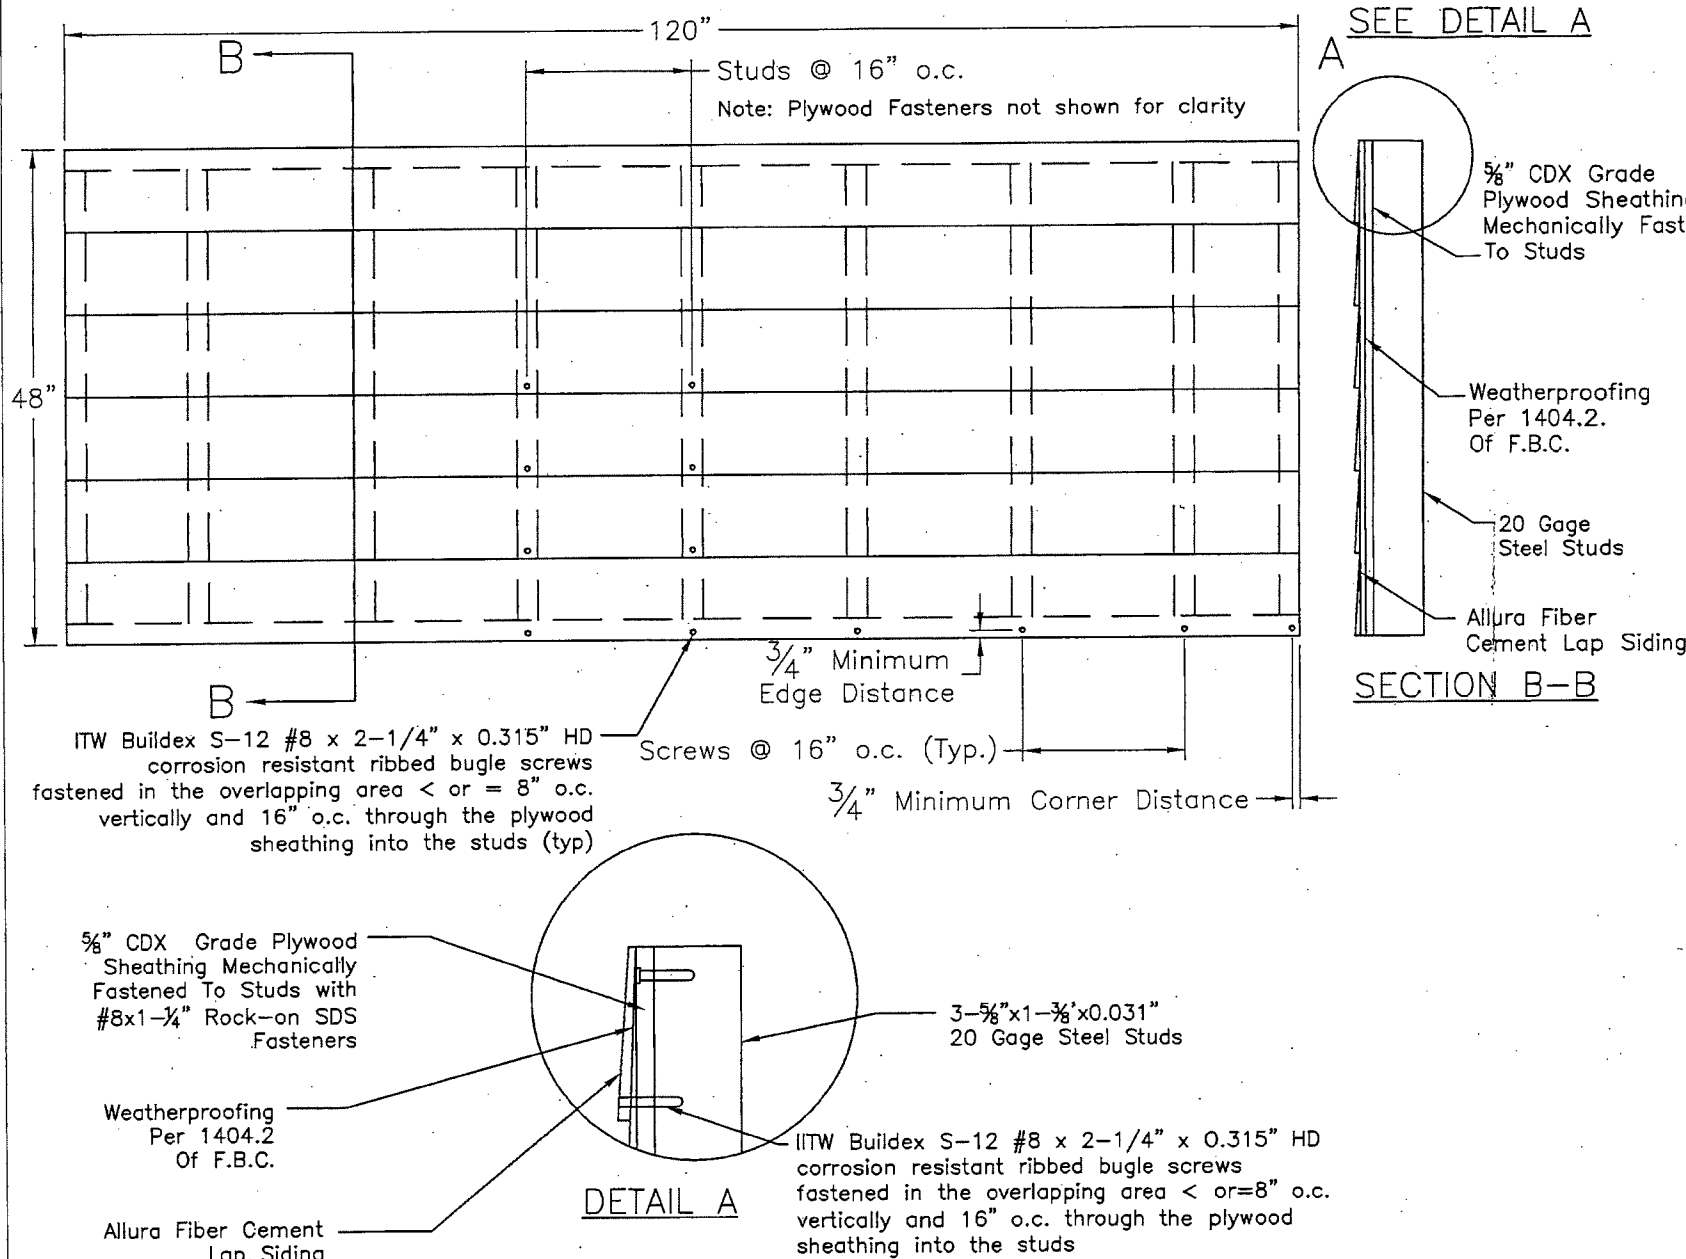 120"
SEE DETAIL A
A
B
Studs @ 16" o.c.
Note: Plywood Fasteners not shown for clarity
48"
⅝" CDX Grade
Plywood
Mechanically
To Studs
Weatherproofing
Per 1404.2.
Of F.B.C.
20 Gage
Steel Studs
Allura Fiber
Cement Lap Siding
SECTION B-B
3/4" Minimum
Edge Distance
B
ITW Buildex S-12 #8 x 2-1/4" x 0.315" HD
corrosion resistant ribbed bugle screws
fastened in the overlapping area < or = 8" o.c.
vertically and 16" o.c. through the plywood
sheathing into the studs (typ)
Screws @ 16" o.c. (Typ.)
3/4" Minimum Corner Distance
⅝" CDX Grade Plywood
Sheathing Mechanically
Fastened To Studs with
#8x1-¼" Rock-on SDS
Fasteners
3-⅝"x1-⅜'x0.031"
20 Gage Steel Studs
Weatherproofing
Per 1404.2
Of F.B.C.
IITW Buildex S-12 #8 x 2-1/4" x 0.315" HD
corrosion resistant ribbed bugle screws
fastened in the overlapping area < or=8" o.c.
vertically and 16" o.c. through the plywood
sheathing into the studs
DETAIL A
Allura Fiber Cement
Lap Siding